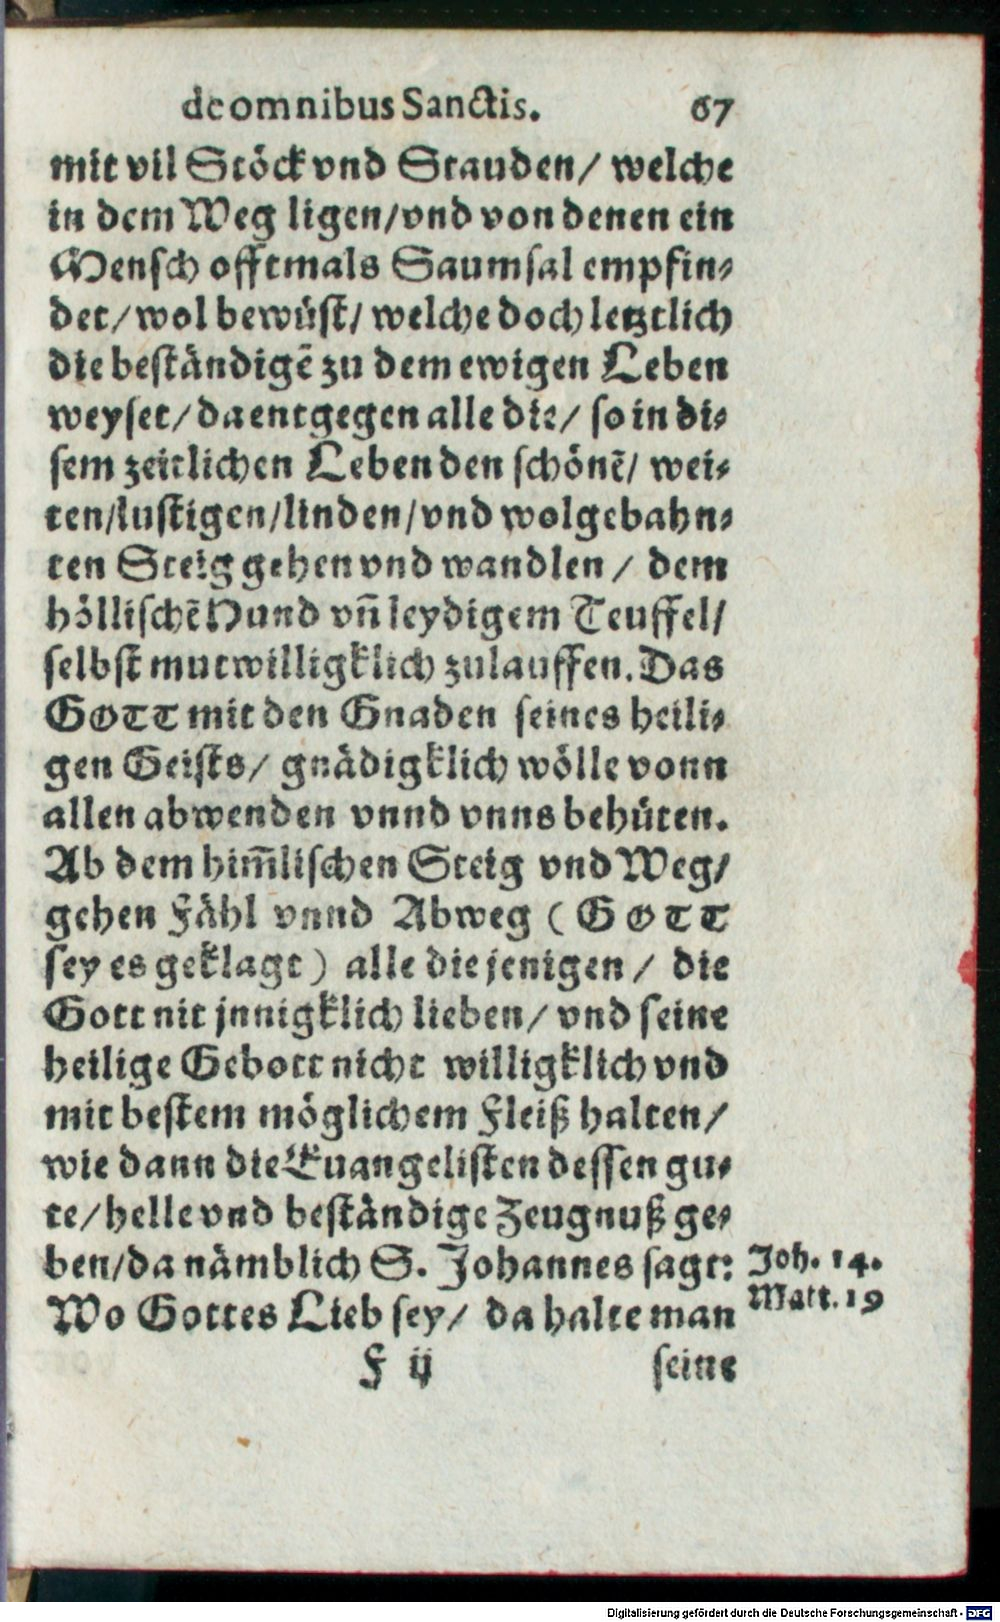 de omnibus Sanctis. 67
mit vil Stöck vnd Stauden/ welche
in dem Weg ligen/vnd von denen ein
Mensch offtmals Saumsal empfin⸗
det/wol bewüst/ welche doch letztlich
die beständigẽ zu dem ewigen Leben
weyset/ da entgegen alle die/ so in di⸗
sem zeitlichen Leben den schönẽ/ wei⸗
ten/lustigen/linden/vnd wolgebahn⸗
ten Steig gehen vnd wandlen / dem
höllischẽ Hund vñ leydigem Teuffel/
selbst mutwilligklich zulauffen. Das
GOTT mit den Gnaden seines heili⸗
gen Geists/ gnädigklich wölle vonn
allen abwenden vnnd vnns behüten.
Ab dem him̃lischen Steig vnd Weg/
gehen Fähl vnnd Abweg ( GOTT
sey es geklagt ) alle die jenigen / die
Gott nit jnnigklich lieben/ vnd seine
heilige Gebott nicht willigklich vnd
mit bestem möglichem Fleiß halten/
wie dann die Euangelisten dessen gu⸗
te/ helle vnd beständige Zeugnuß ge⸗
ben/da nämblich S. Johannes sagt: Joh. 14.
Wo Gottes Lieb sey/ da halte man Matt. 19
F ij seine
Digitalisierung gefördert durch die Deutsche Forschungsgemeinschaft - DFG